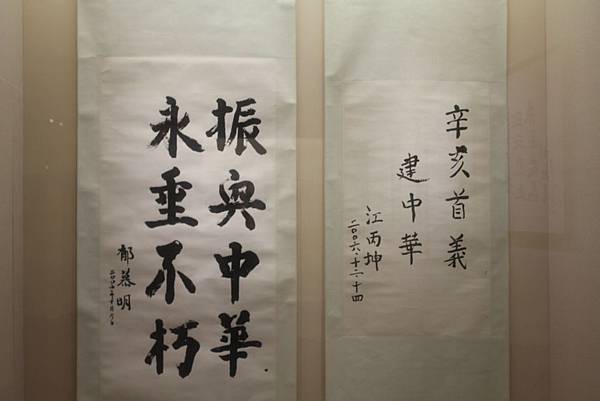 辛亥首義
建中華
江丙坤
二〇〇六·十二·十四
振興中華
永垂不朽
郁慕明